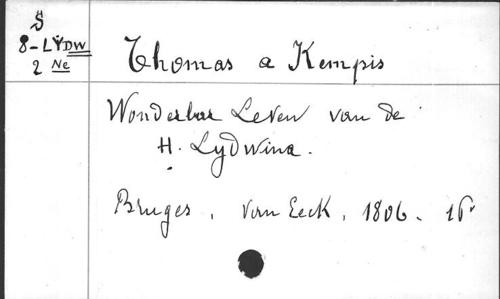 HS
8-LYDW
2 Ne
Thomas a Kempis
Wonderbar Leven van de
H. Lydwina.
Bruges, Van Eeck, 1806. 16°